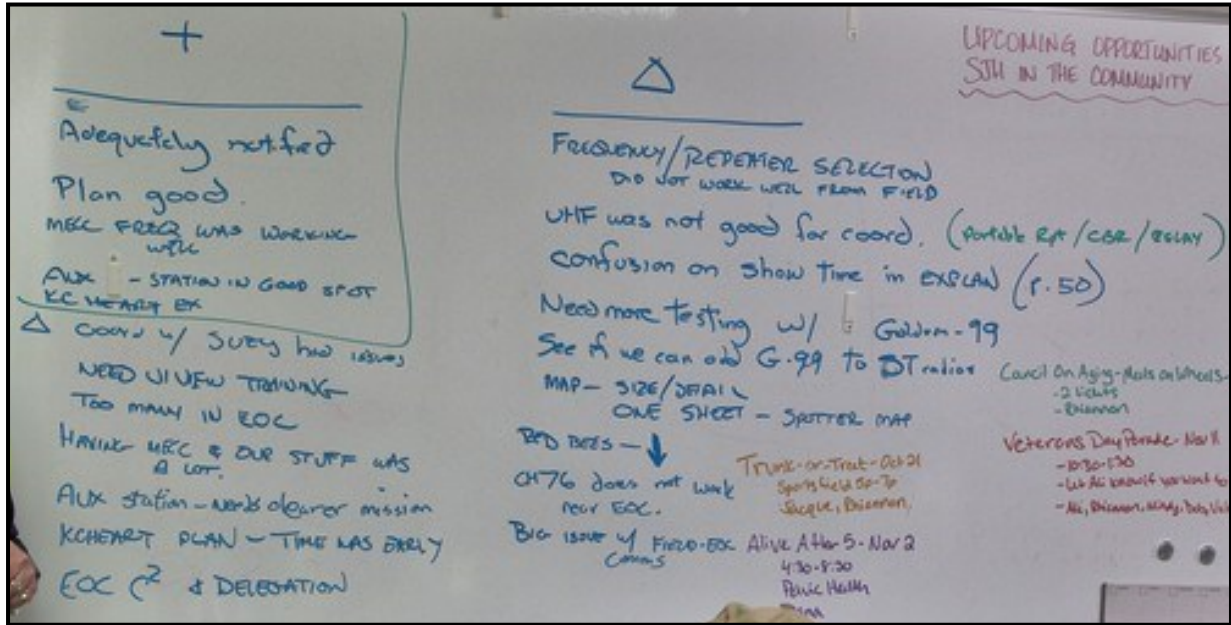 +
Adequately notified
Plan good.
MECC FREQ WAS WORKING
WELL
AUX - STATION IN GOOD SPOT
KC HEART EX
△ Coord w/ SUZY had issues
NEED VIVIEW TRAINING
TOO MANY IN EOC
HAVING MECC & OUR STUFF WAS
A LOT.
AUX station - needs clearer mission
KCHEART PLAN - TIME WAS EARLY
EOC C² & DELEGATION
△
FREQUENCY/REPEATER SELECTION
DID NOT WORK WELL FROM FIELD
UHF was not good for coord. (portable Rpt/CBR/RELAY)
confusion on show time in EXPLAN (P.50)
Need more testing w/ Goldem-99
See if we can add G-99 to DT radios
MAP - SIZE/DETAIL
ONE SHEET - SPOTTER MAP
RED BEES - ↓
CH76 does not work
near EOC.
BIG ISSUE w/ FIELD-EOC
Comms
UPCOMING OPPORTUNITIES
SJH IN THE COMMUNITY
Council On Aging-Meals on Wheels-
- Rhiannon
Veterans Day Parade - Nov 11
- 10:30-1:30
- Let Ali know if you want to
- Ali, Rhiannon, Mindy,
Trunk-or-Treat - Oct 21
Sportsfield 5p-7p
Jacque, Rhiannon,
Alive After 5 - Nov 2
4:30-8:30
Pelvic Health